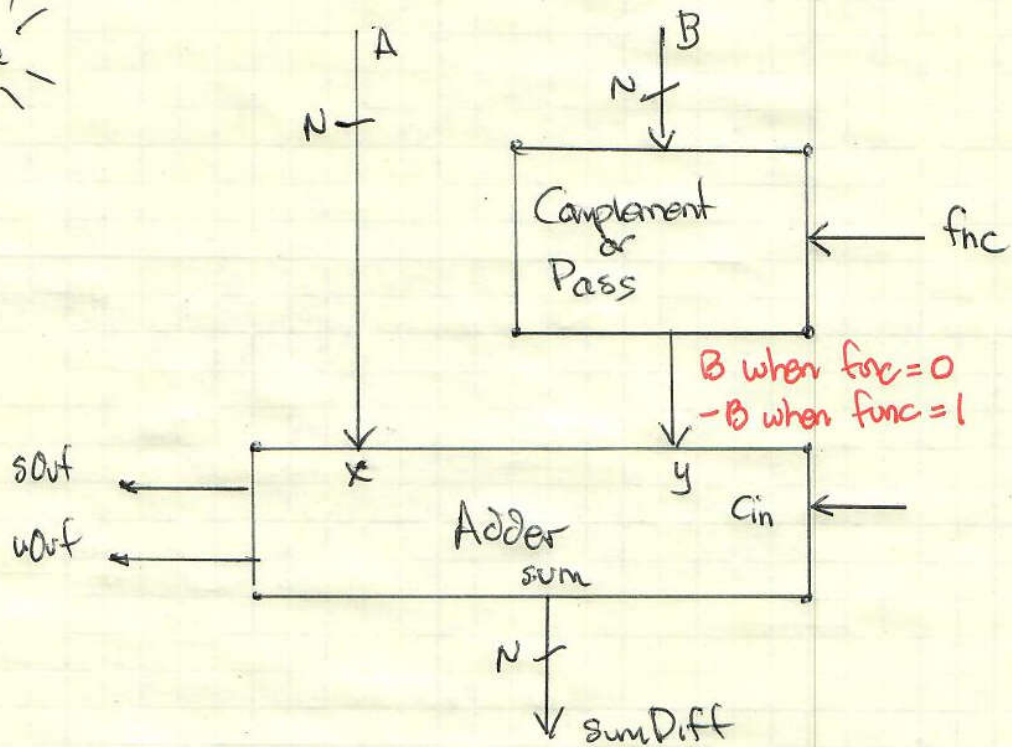 A
B
N
N
Complement
or
Pass
fnc
B when fnc=0
-B when func=1
sOvf
x
y
Cin
uOvf
Adder
sum
N
sumDiff